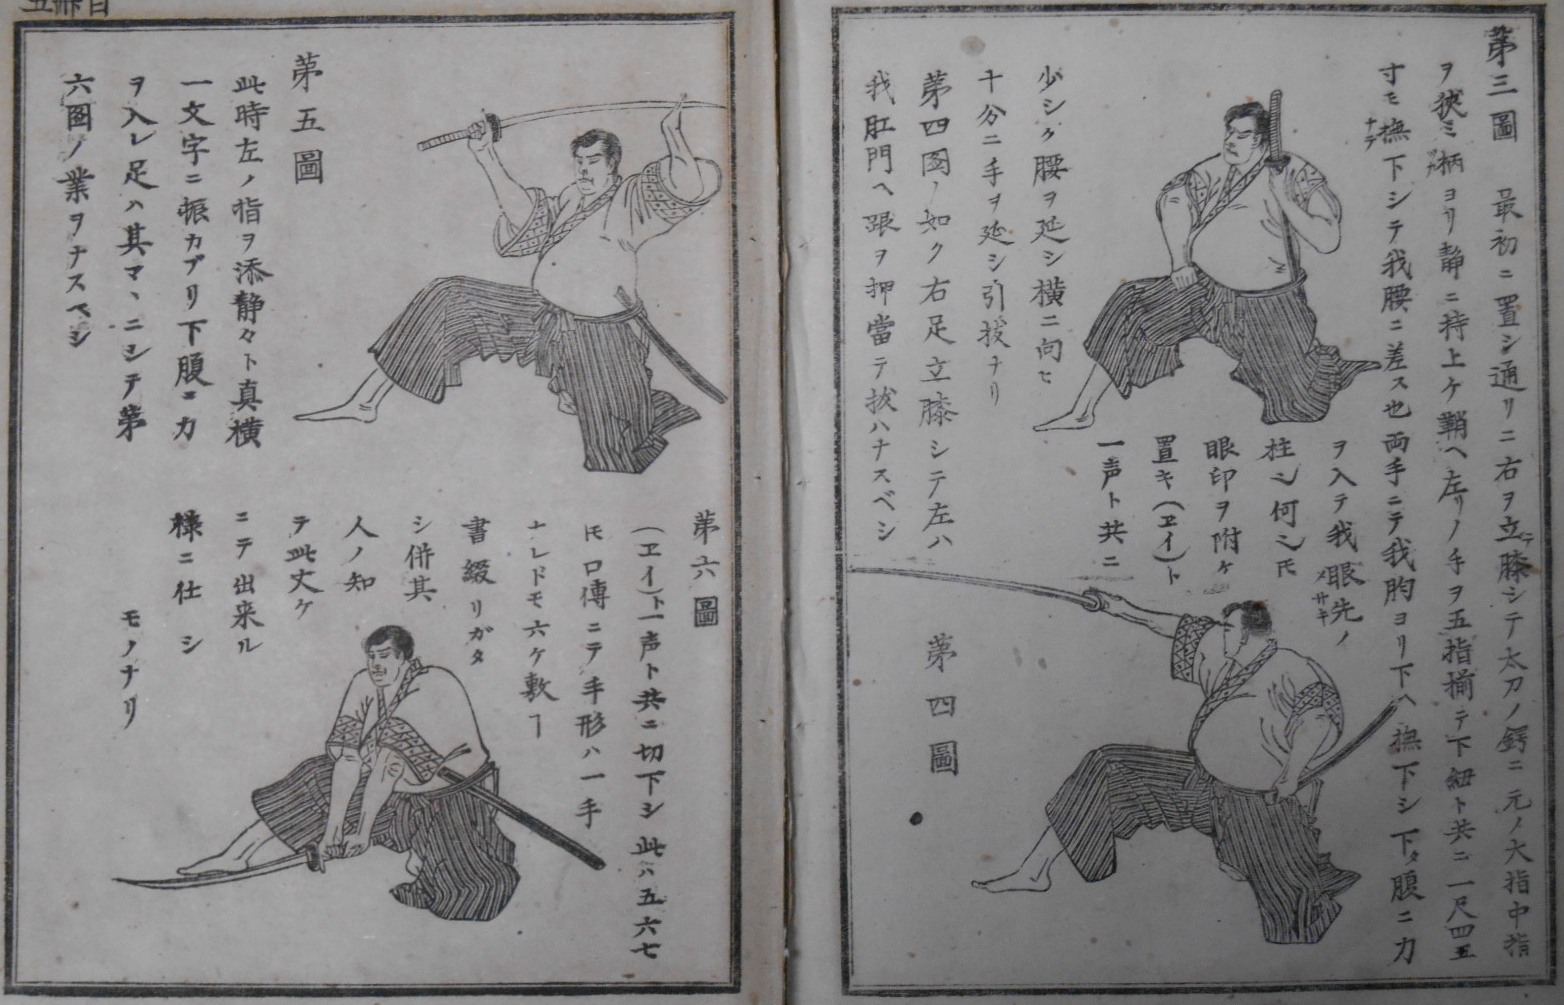 第三圖　最初ニ置シ通リニ右ヲ立テ膝シテ太刀ノ鍔ニ元ノ大指中指
ヲ狹ミ柄ヨリ静ニ持上ケ鞘ヘ左リノ手ヲ五指揃テ下紐ト共ニ一尺四五
寸モ撫下シテ我腰ニ差ス也両手ニテ我胸ヨリ下ヘ撫下シ下タ腹ニ力
ヲ入テ我眼先ノ
柱シ何シ㠪
眼印ヲ附ケ
置キ(ヱイ)ト
一声ト共ニ
少シク腰ヲ延シ横ニ向ヒ
十分ニ手ヲ延シ引援ナリ
第四図ノ如ク右足立膝シテ左ハ
我肛門ヘ跟ヲ押當テ拔ハナスベシ
第四圖
第五圖
此時左ノ指ヲ添静々ト真横
一文字ニ振カブリ下腹ニ力
ヲ入レ足ハ其マヽニシテ第
六図ノ業ヲナスベシ
第六圖
(ヱイ)ト一声ト共ニ切下シ此ハ五六七
㠪口傳ニテ手形ハ一手
ナレドモ六ケ敷ヿ
書綴リガタ
シ併其
人ノ知
テ此丈ケ
ニテ出来ル
様ニ仕シ
モノナリ